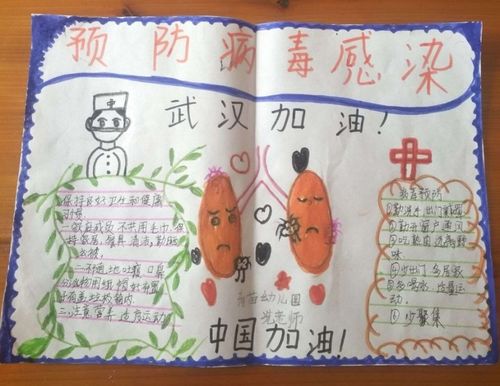 预防病毒感染
武汉加油!
中
保持良好卫生和健康
习惯。
一家庭成员不共用毛巾,保
持家居、餐具清洁,勤晒
衣被。
二不随地吐痰,口鼻
分泌物用纸巾包好,弃置
有盖垃圾箱内
三、注意营养,适度运动
预防
①勤洗手出门戴
②勤开窗户通风
③吃熟肉远离野
味
④少出门 多居家
⑤多喝水,适量运
动。
⑥少聚集
青苗幼儿园
老师
中国加油!